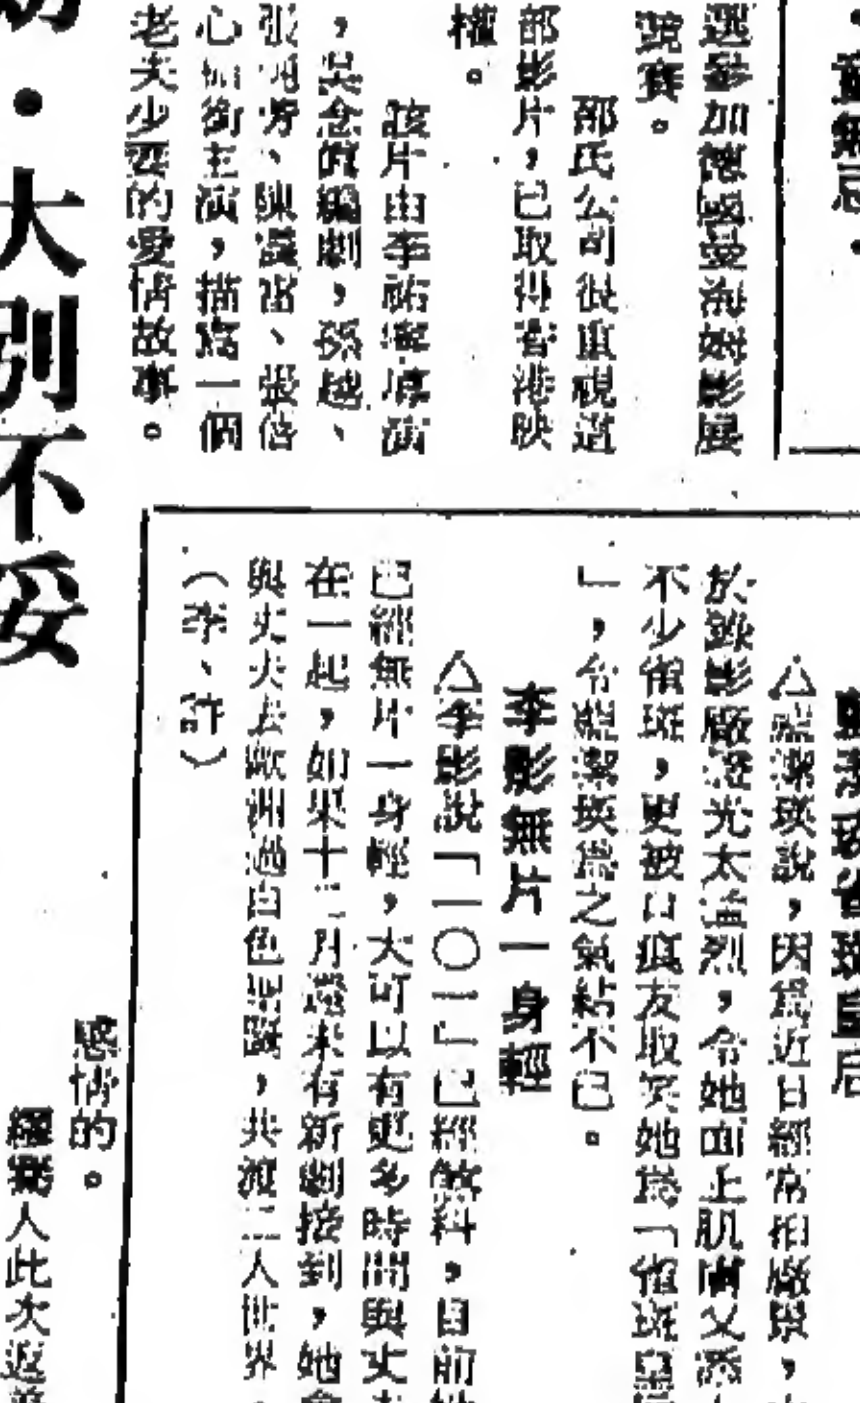 選參加德國曼海姆影展
競賽。
邵氏公司很重視這
部影片，已取得香港映
權。
該片由李祐寧導演
，吳念眞編劇，孫越、
張　芳、陳　雷、張信
心　銜主演，描寫一個
老夫少妻的愛情故事。
大別不妥
△　潔瑛說，因爲近日經常拍廠景，
於錄影廠燈光太猛烈，令她面上肌膚又
不少雀斑，更被口痕友取笑她爲「雀斑皇
」，令　潔瑛爲之氣結不已。
李影無片一身輕
△李影說「一〇一」已經煞科，目前
已經無片一身輕，大可以有更多時間與丈夫
在一起，如果十二月還未有新劇接到，她會
與丈夫去歐洲過白色聖誕，共渡二人世界。
（李、許）
感情的。
人此次返